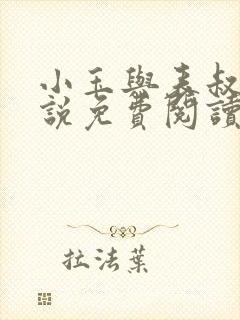 小玉與表叔
說免費閱讀
拉法葉